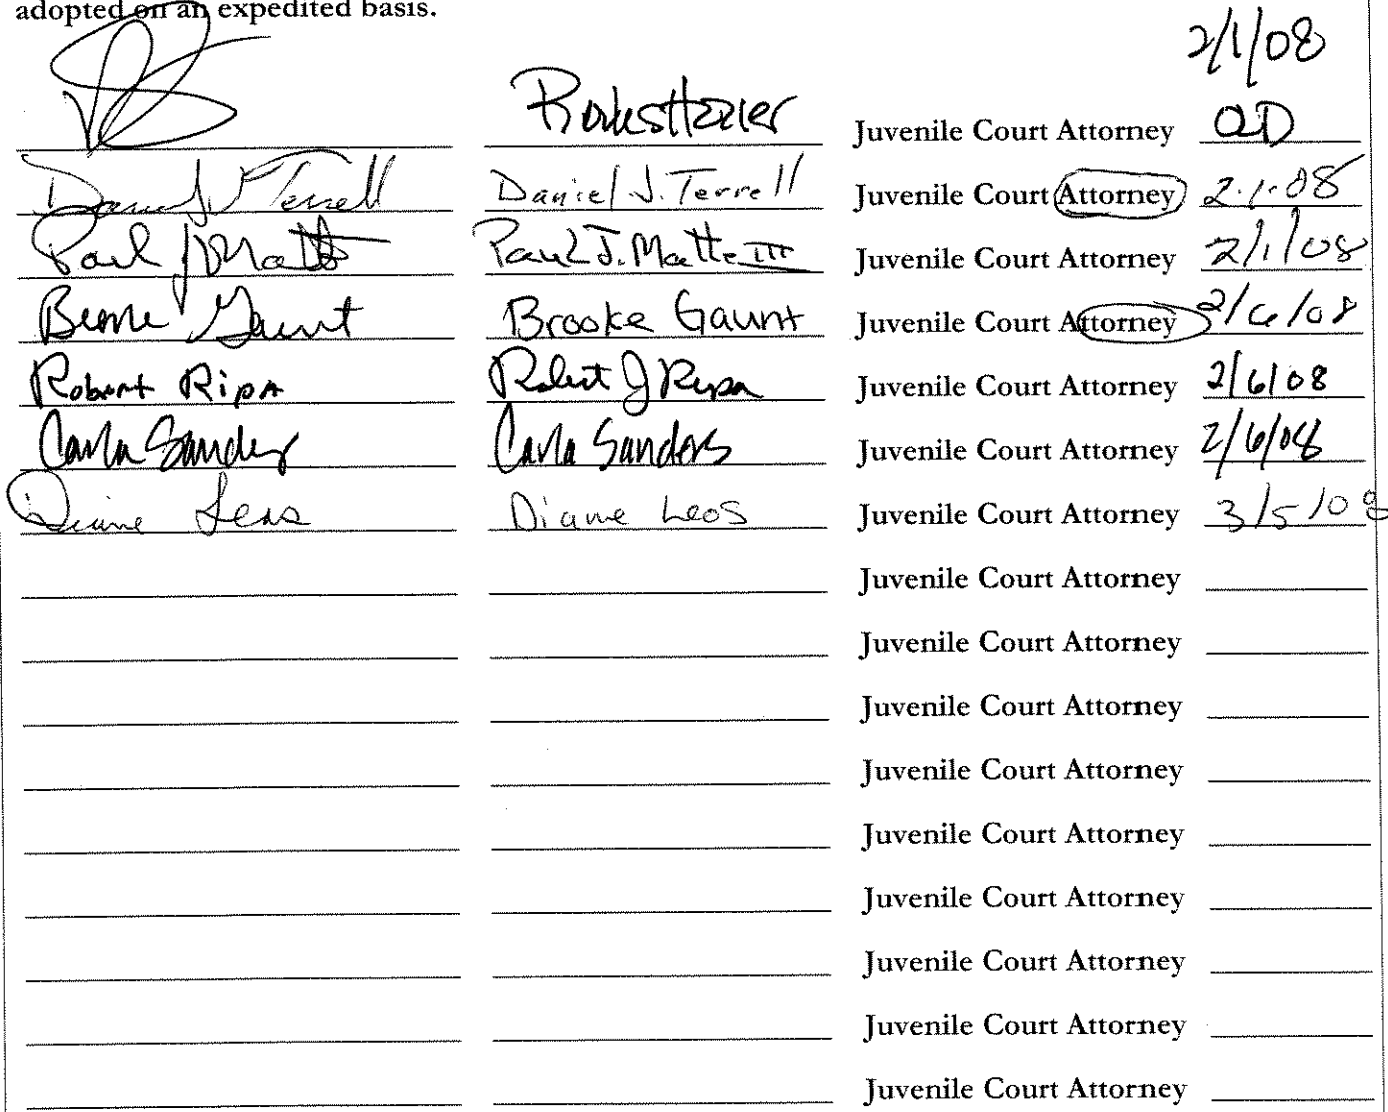 adopted on an expedited basis.
2/1/08
Juvenile Court Attorney
Daniel J. Terrell Daniel J. Terrell Juvenile Court Attorney 2.1.08
Paul J. Mattes III Juvenile Court Attorney 2/1/08
Brooke Gaunt Brooke Gaunt Juvenile Court Attorney 2/6/08
Robert Ripa Robert J Ripa Juvenile Court Attorney 2/6/08
Carla Sanders Carla Sanders Juvenile Court Attorney 2/6/08
Diane Leos Diane Leos Juvenile Court Attorney 3/5/08
Juvenile Court Attorney
Juvenile Court Attorney
Juvenile Court Attorney
Juvenile Court Attorney
Juvenile Court Attorney
Juvenile Court Attorney
Juvenile Court Attorney
Juvenile Court Attorney
Juvenile Court Attorney